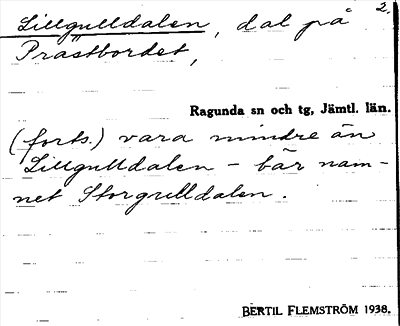 2.
Lillgulldalen, dal på
Prästbordet,
Ragunda sn och tg, Jämtl. län.
(forts.) vara mindre än
Lillgulldalen - bär nam-
net Storgulldalen.
BERTIL FLEMSTRÖM 1938.